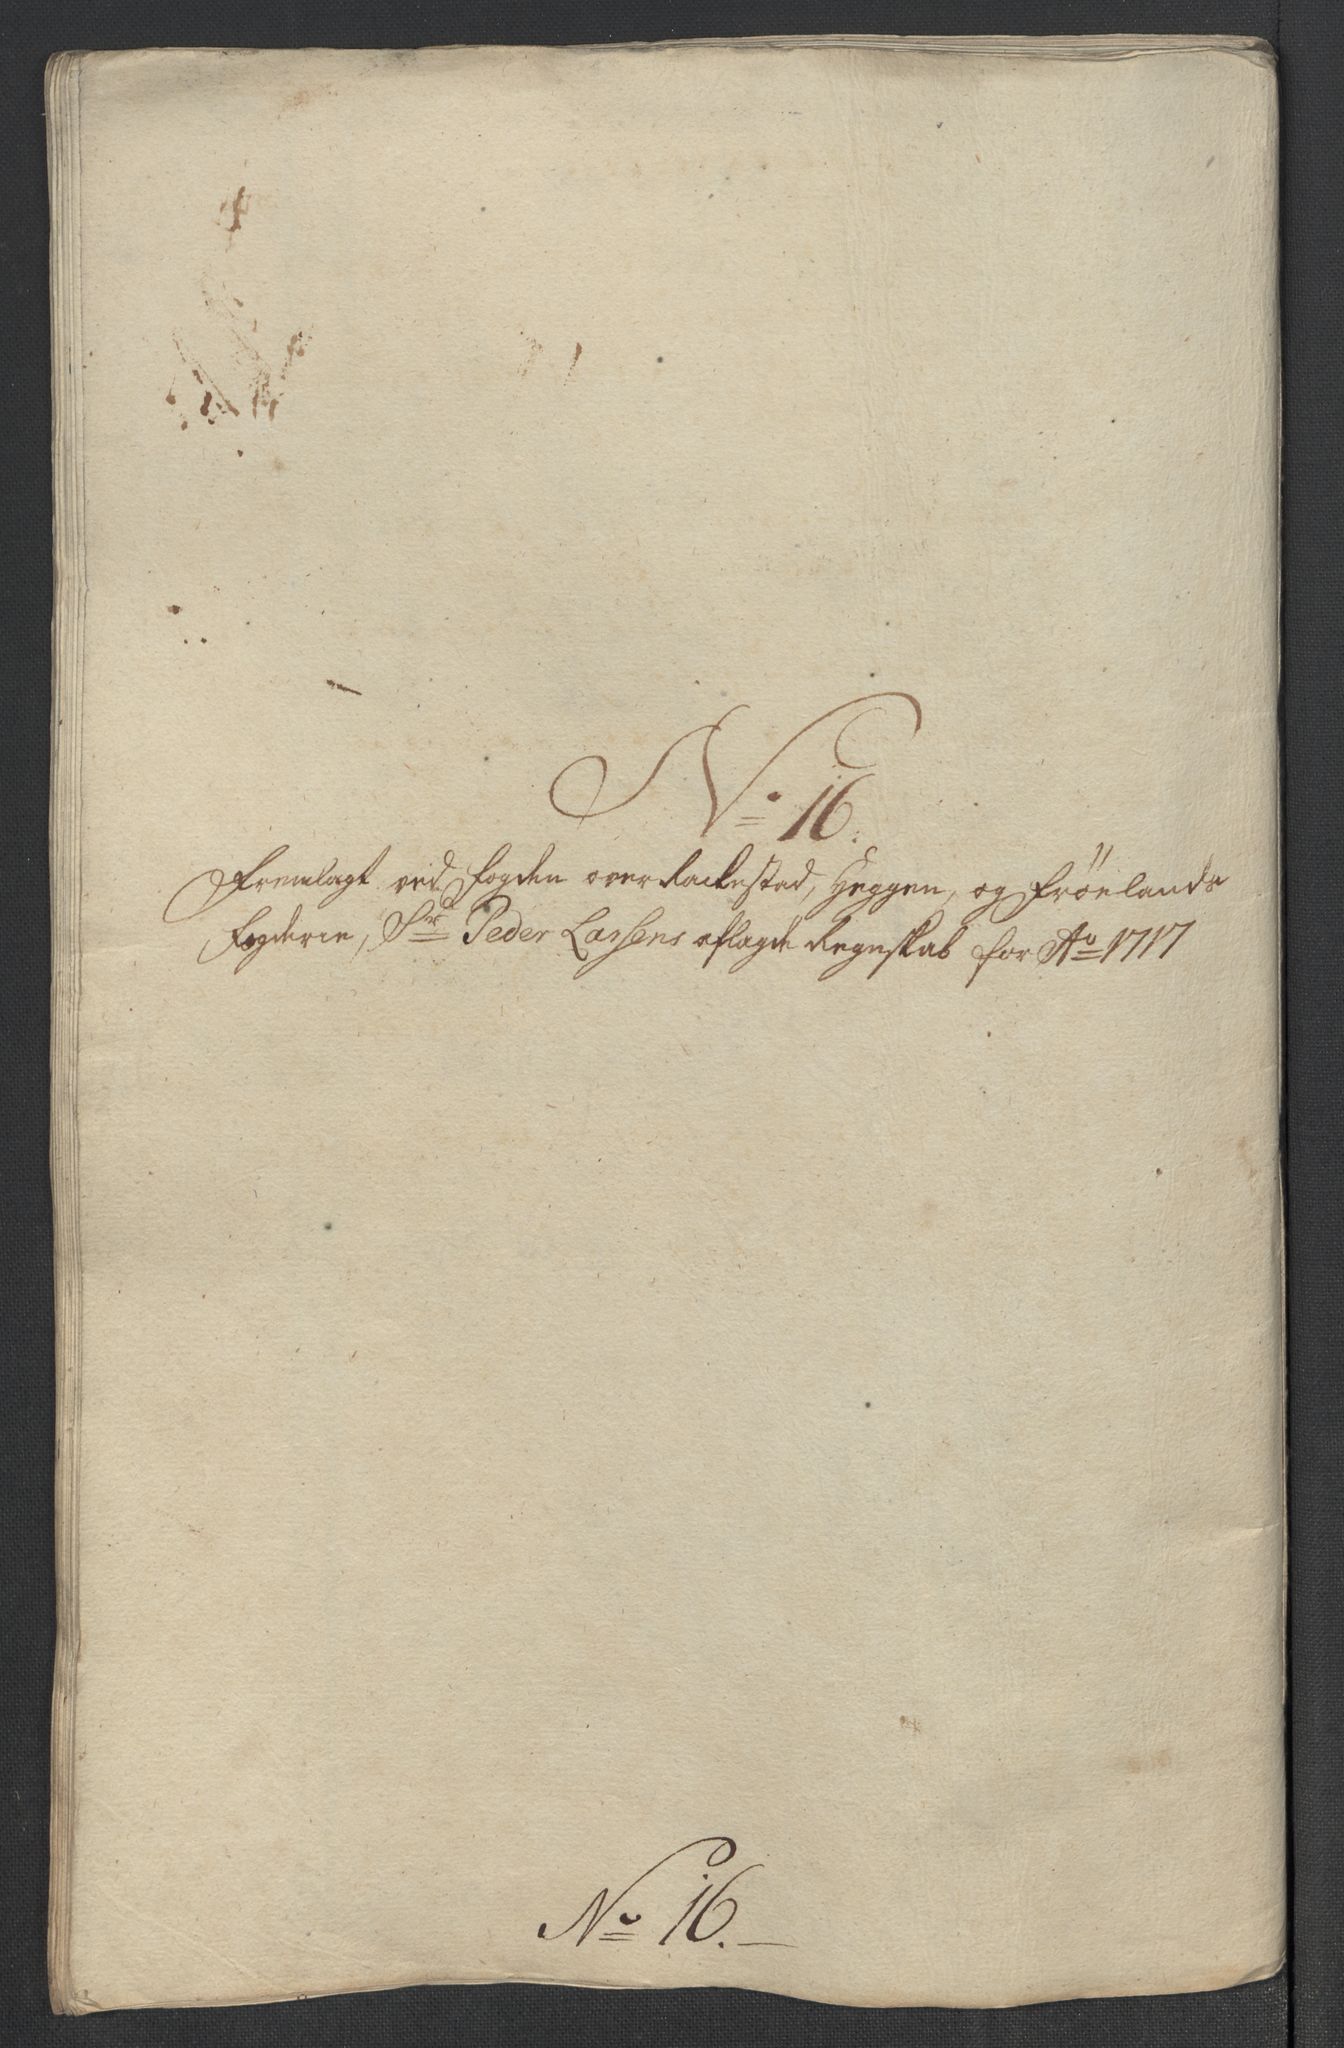 No 16.
Fremlagt ved Fogden over Rackestad, Heggen, og Fröelands
Fogderie, Sr Peder Larsens aflagde Regnskab for Ao 1717
No 16.